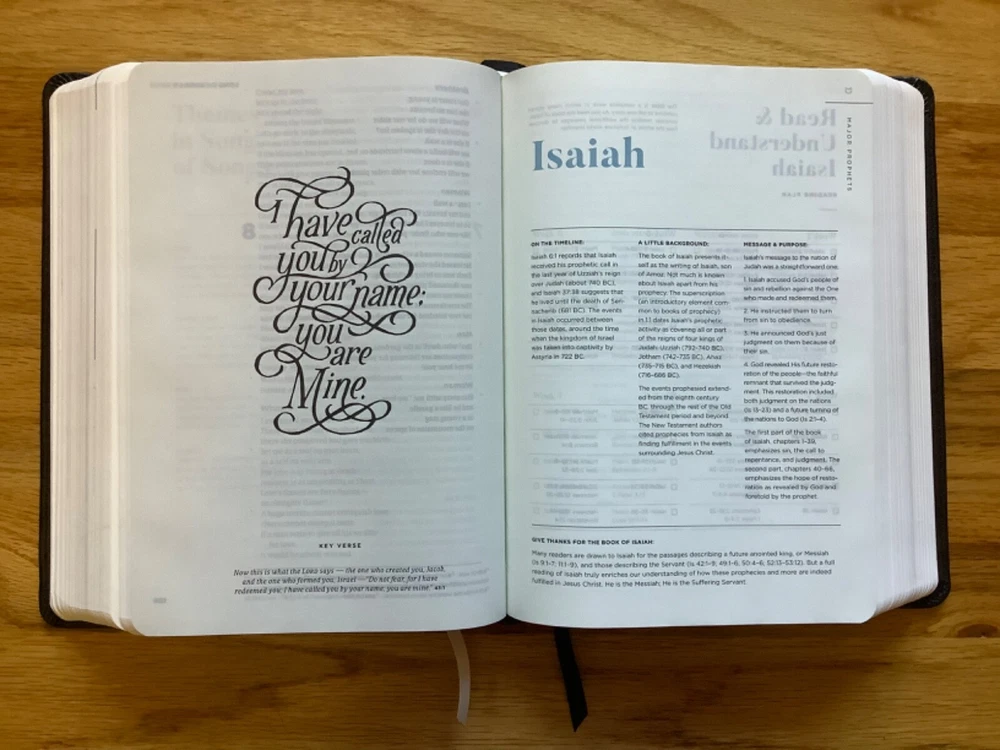 I have
called
you by
your name;
you
are
Mine.
KEY VERSE
Now this is what the LORD says — the one who created you, Jacob,
and the one who formed you, Israel — "Do not fear, for I have
redeemed you; I have called you by your name; you are mine."
MAJOR PROPHETS
Isaiah
ON THE TIMELINE:
Isaiah 6:1 records that Isaiah
received his prophetic call in
the last year of Uzziah's reign
over Judah (about 740 BC),
and Isaiah 37:38 suggests that
he lived until the death of Sen-
nacherib (681 BC). The events
in Isaiah occurred between
those dates, around the time
when the kingdom of Israel
was taken into captivity by
Assyria in 722 BC.
A LITTLE BACKGROUND:
The book of Isaiah presents it-
self as the writing of Isaiah, son
of Amoz. Not much is known
about Isaiah apart from his
prophecy. The superscription
(an introductory element com-
mon to books of prophecy)
in 1:1 dates Isaiah's prophetic
activity as covering all or part
of the reigns of four kings of
Judah: Uzziah (792–740 BC),
Jotham (742–735 BC), Ahaz
(735–715 BC), and Hezekiah
(716–686 BC).
The events prophesied extend-
ed from the eighth century
BC, through the rest of the Old
Testament period and beyond.
The New Testament authors
cited prophecies from Isaiah as
finding fulfillment in the events
surrounding Jesus Christ.
MESSAGE & PURPOSE:
Isaiah's message to the nation of
Judah was a straightforward one.
1. Isaiah accused God's people of
sin and rebellion against the One
who made and redeemed them.
2. He instructed them to turn
from sin to obedience.
3. He announced God's just
judgment on them because of
their sin.
4. God revealed His future resto-
ration of the people—the faithful
remnant that survived the judg-
ment. This restoration included
both judgment on the nations
(Is 13–23) and a future turning of
the nations to God (Is 2:1–4).
The first part of the book
of Isaiah, chapters 1–39,
emphasizes sin, the call to
repentance, and judgment. The
second part, chapters 40–66,
emphasizes the hope of resto-
ration as revealed by God and
foretold by the prophet.
GIVE THANKS FOR THE BOOK OF ISAIAH:
Many readers are drawn to Isaiah for the passages describing a future anointed king, or Messiah
(Is 9:1–7; 11:1–9), and those describing the Servant (Is 42:1–9; 49:1–6; 50:4–6; 52:13–53:12). But a full
reading of Isaiah truly enriches our understanding of how these prophecies and more are indeed
fulfilled in Jesus Christ. He is the Messiah; He is the Suffering Servant.